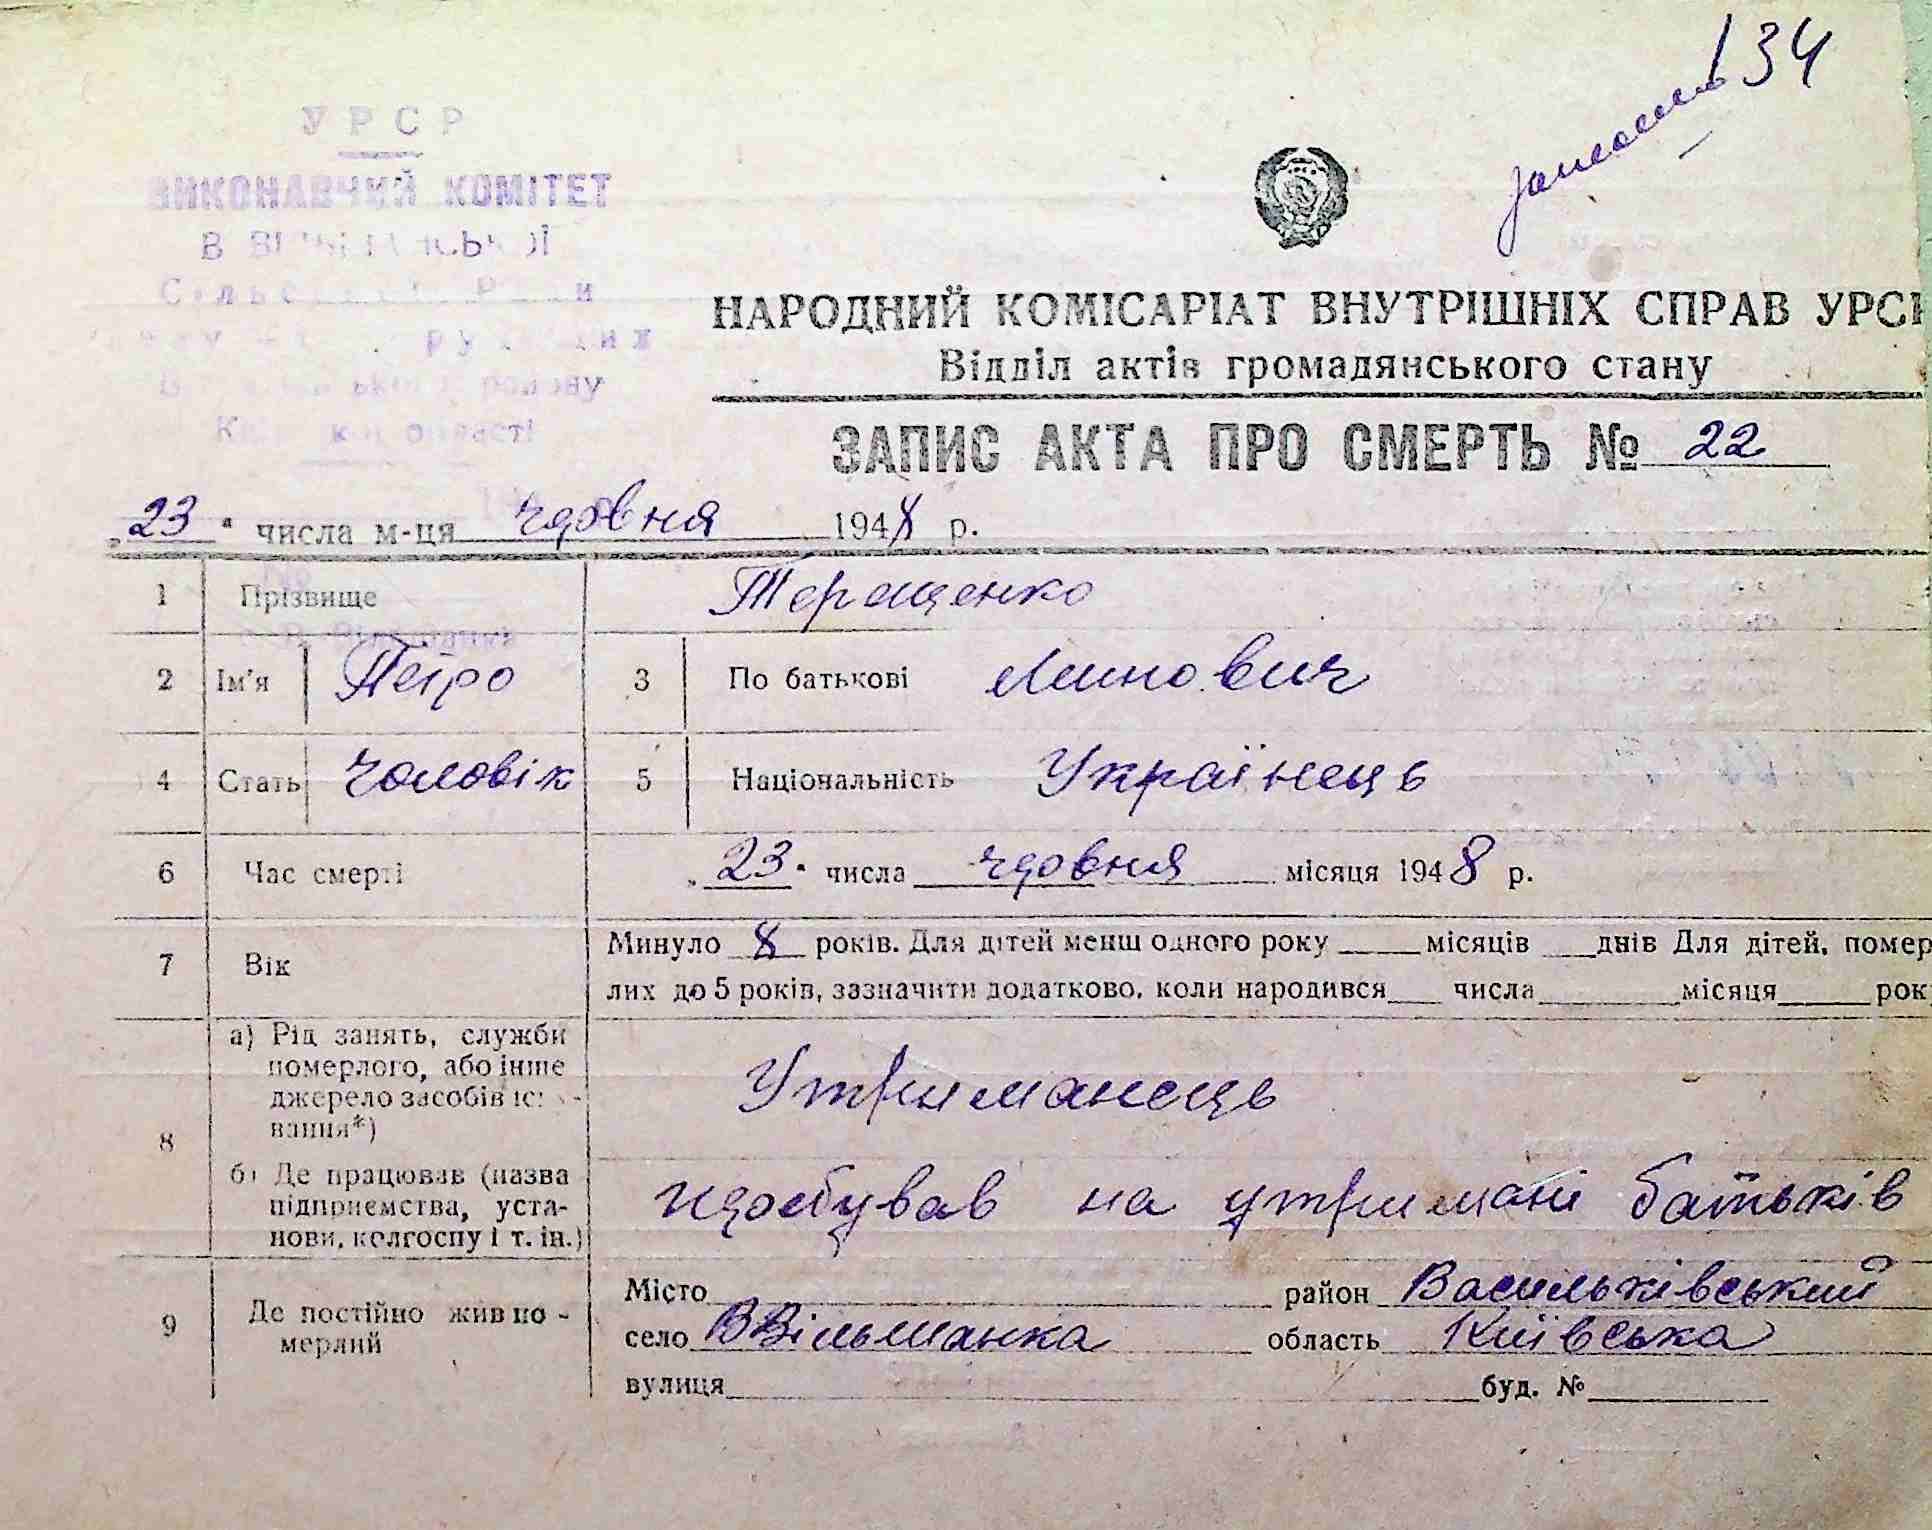 134
УРСР
ВИКОНАВЧИЙ КОМІТЕТ
НАРОДНИЙ КОМІСАРІАТ ВНУТРІШНІХ СПРАВ УРСР
Відділ актів громадянського стану
області
ЗАПИС АКТА ПРО СМЕРТЬ № 22
„23“ числа м-ця червня 1948 р.
1 Прізвище Терещенко
2 Ім'я Петро 3 По батькові
4 Стать Чоловік 5 Національність Українець
6 Час смерті „23“ числа червня місяця 1948 р.
7 Вік Минуло 8 років. Для дітей менш одного року ___ місяців ___ днів Для дітей, помер
лих до 5 років, зазначити додатково, коли народився ___ числа ___ місяця ___ рок
8 а) Рід занять, служби
померлого, або інше
джерело засобів існу-
вання*)
Утриманець
б) Де працював (назва
підприємства, уста-
нови, колгоспу і т. ін.)
перебував на утримані батьків
9 Де постійно жив по-
мерлий
Місто ___ район Васильківський
село ВВільшанка область Київська
вулиця ___ буд. № ___